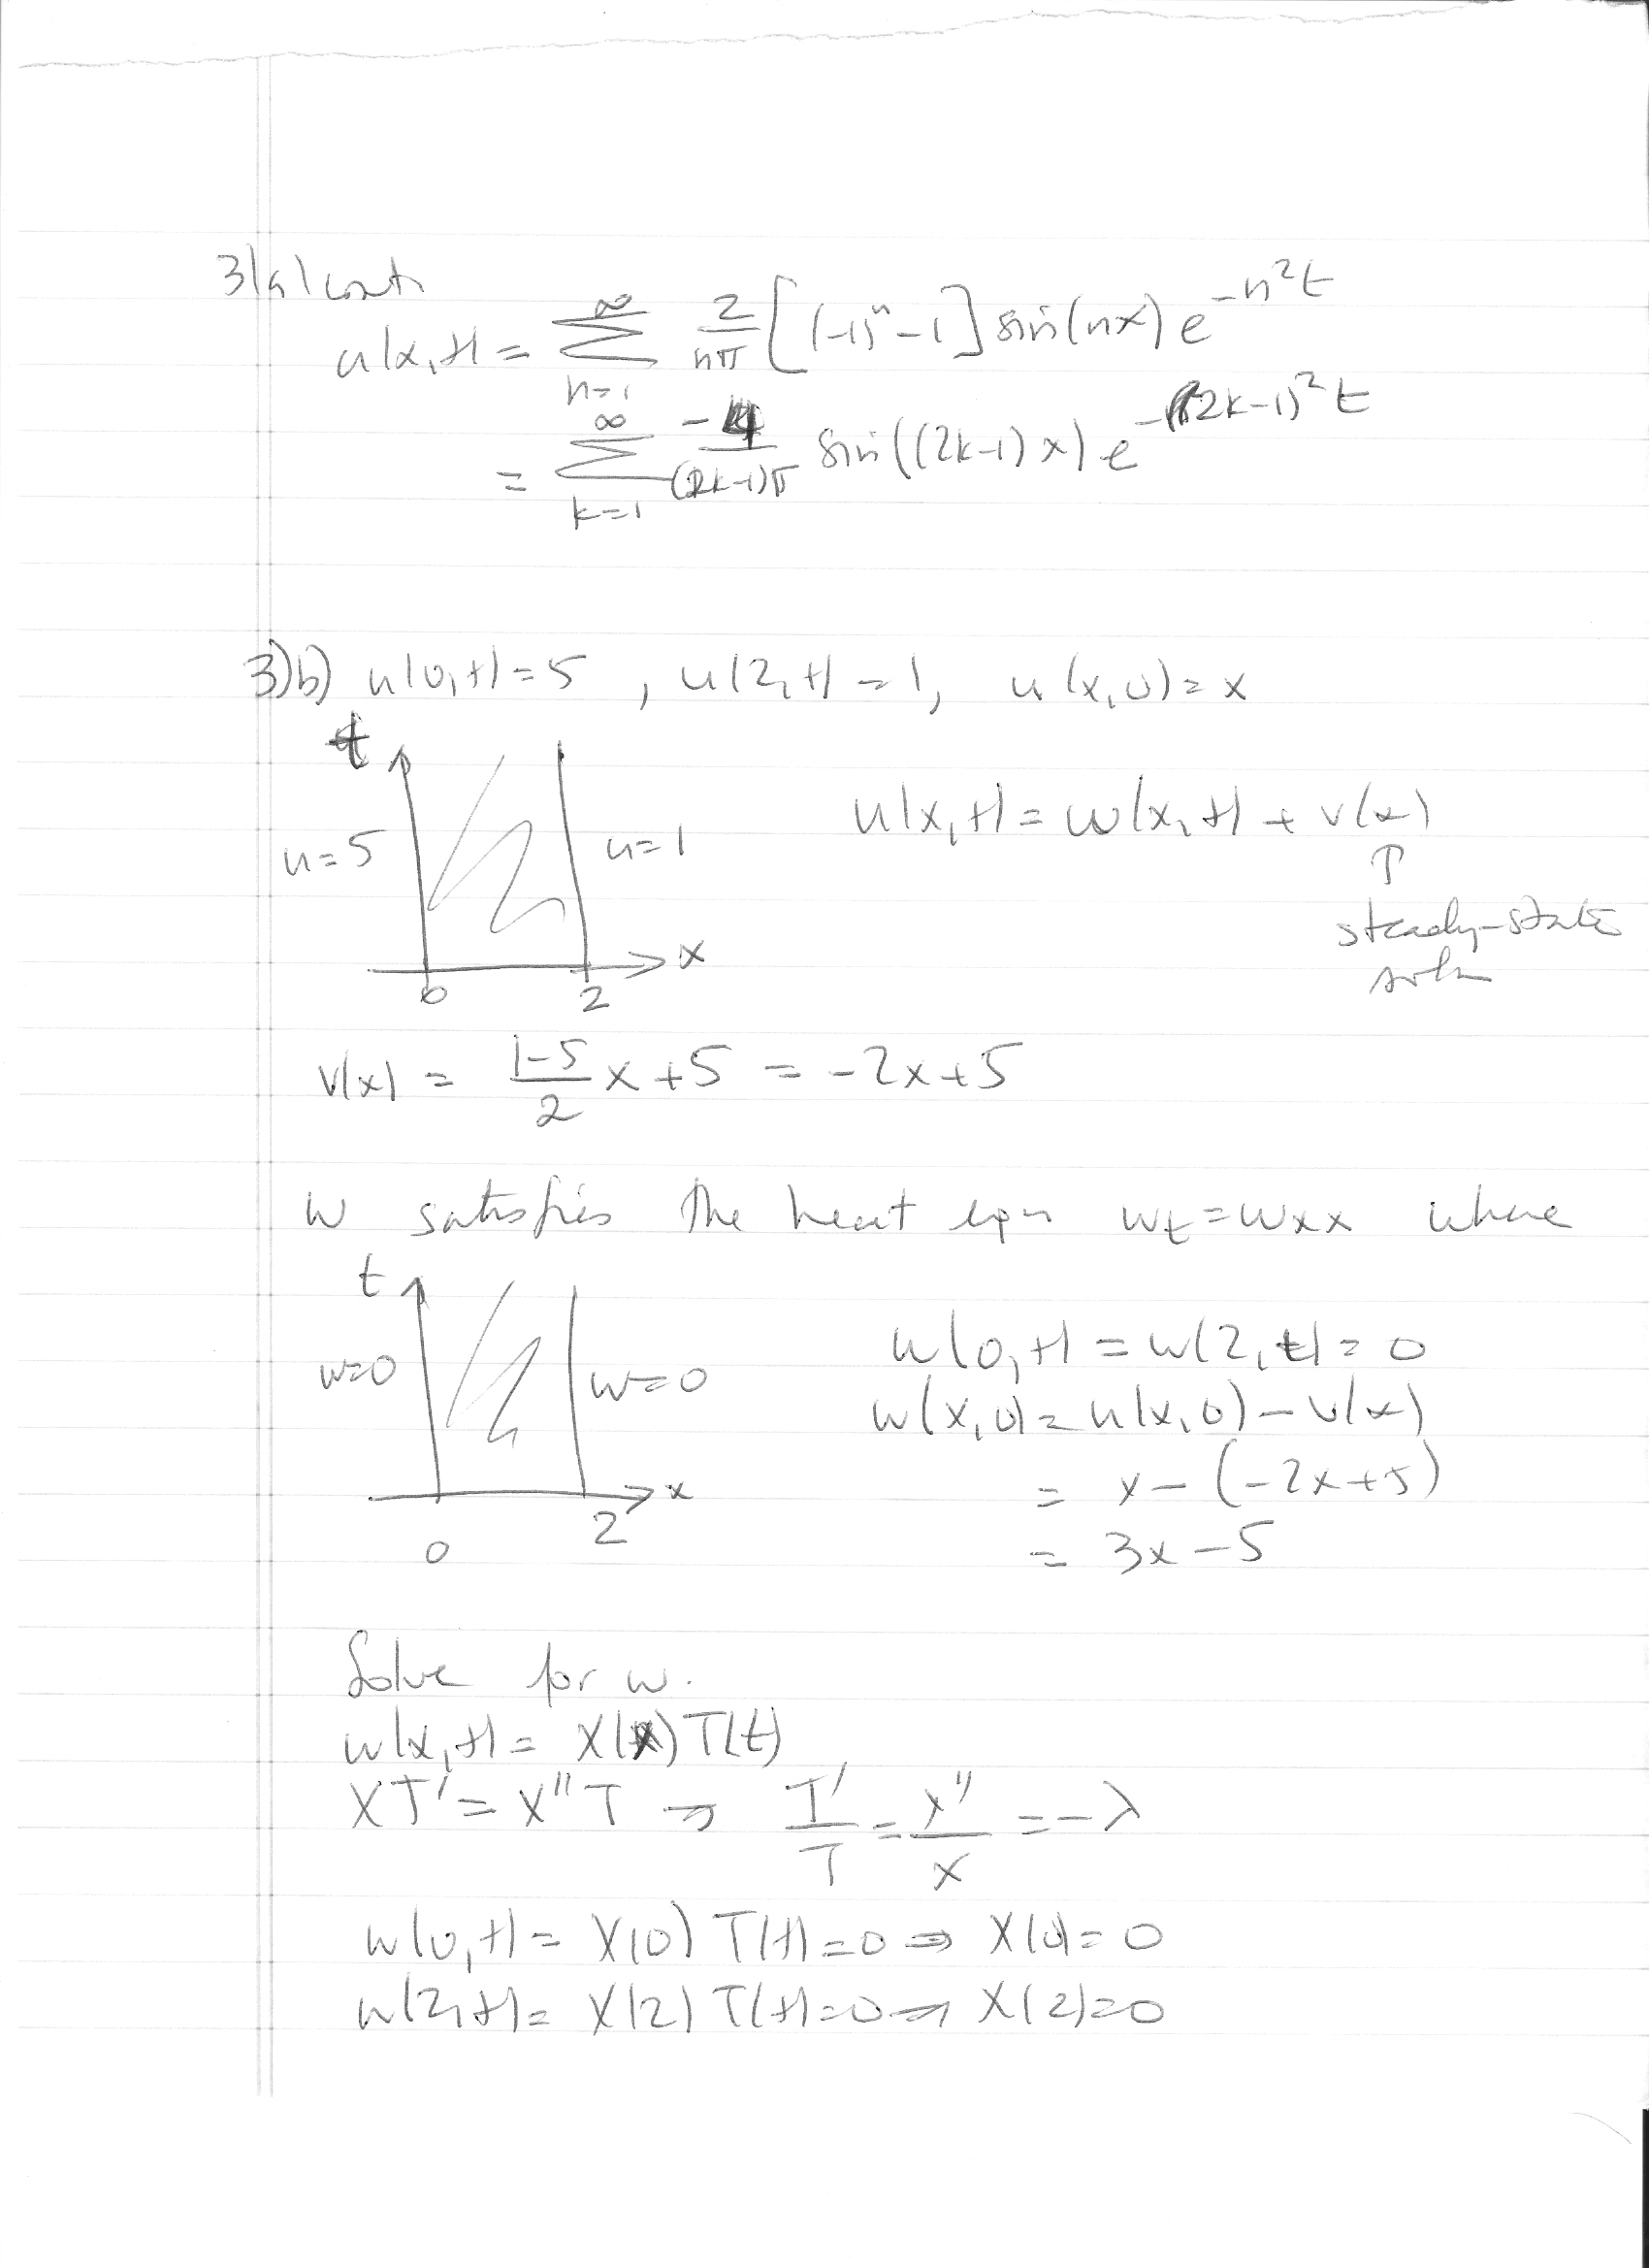 3)a) cont
u(x,t) = ∞ Σ n=1 2/nπ [(-1)^n - 1] sin(nx) e^{-n²t}
= ∞ Σ k=1 -4/(2k-1)π sin((2k-1)x) e^{-(2k-1)²t}
3)b) u(0,t)=5 , u(2,t)=1, u(x,0)=x
t
u=5 u=1 u(x,t) = w(x,t) + v(x)
↑
steady-state
soln
x
0 2
v(x) = (1-5)/2 x + 5 = -2x+5
w satisfies the heat eqn wt = wxx where
t
w=0 w=0 w(0,t) = w(2,t) = 0
w(x,0) = u(x,0) - v(x)
= x - (-2x+5)
x
0 2
= 3x - 5
Solve for w.
w(x,t) = X(x) T(t)
XT' = X''T → T'/T = X''/X = -λ
w(0,t) = X(0) T(t) = 0 ⇒ X(0) = 0
w(2,t) = X(2) T(t) = 0 ⇒ X(2) = 0